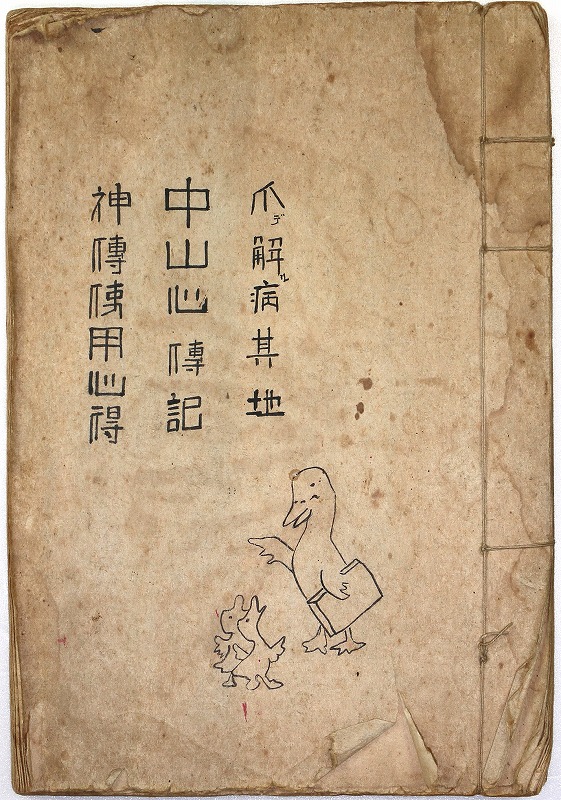 爪デ解ル病其地
中山心傳記
神傳使用心得